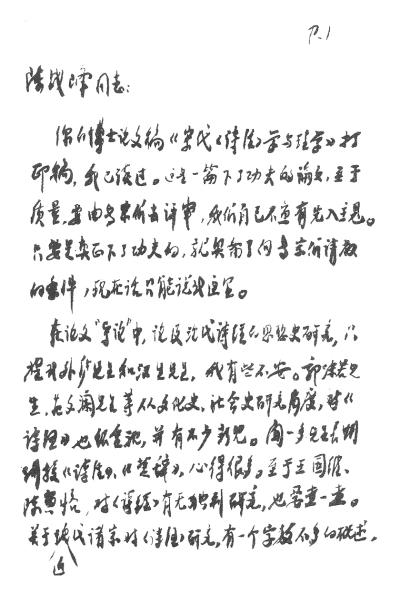 P.1
陈战峰同志：
你的博士论文稿《宋代〈诗经〉学与理学》打
印稿，我已读过。这是一篇下了功夫的论文，至于
质量，要由专家们去评审，我们自己不应有先入主见。
只要是真正下了功夫的，就具备了向专家们请教
的条件，现在论只能说到这里。
在论文"导论"中，谈及近代诗经的思想史研究，只
提到外庐先生和汉生先生，我有些不安。郭沫若先
生、范文澜先生等从文化史、社会史研究角度，对《
诗经》也很重视，并有不少新见。闻一多先生长期
研探《诗经》、《楚辞》，心得很多。至于王国维、
陈寅恪，对《诗经》有无独到研究，也要查一查。
关于近代诸家对《诗经》研究，有一个字数不多的概述，